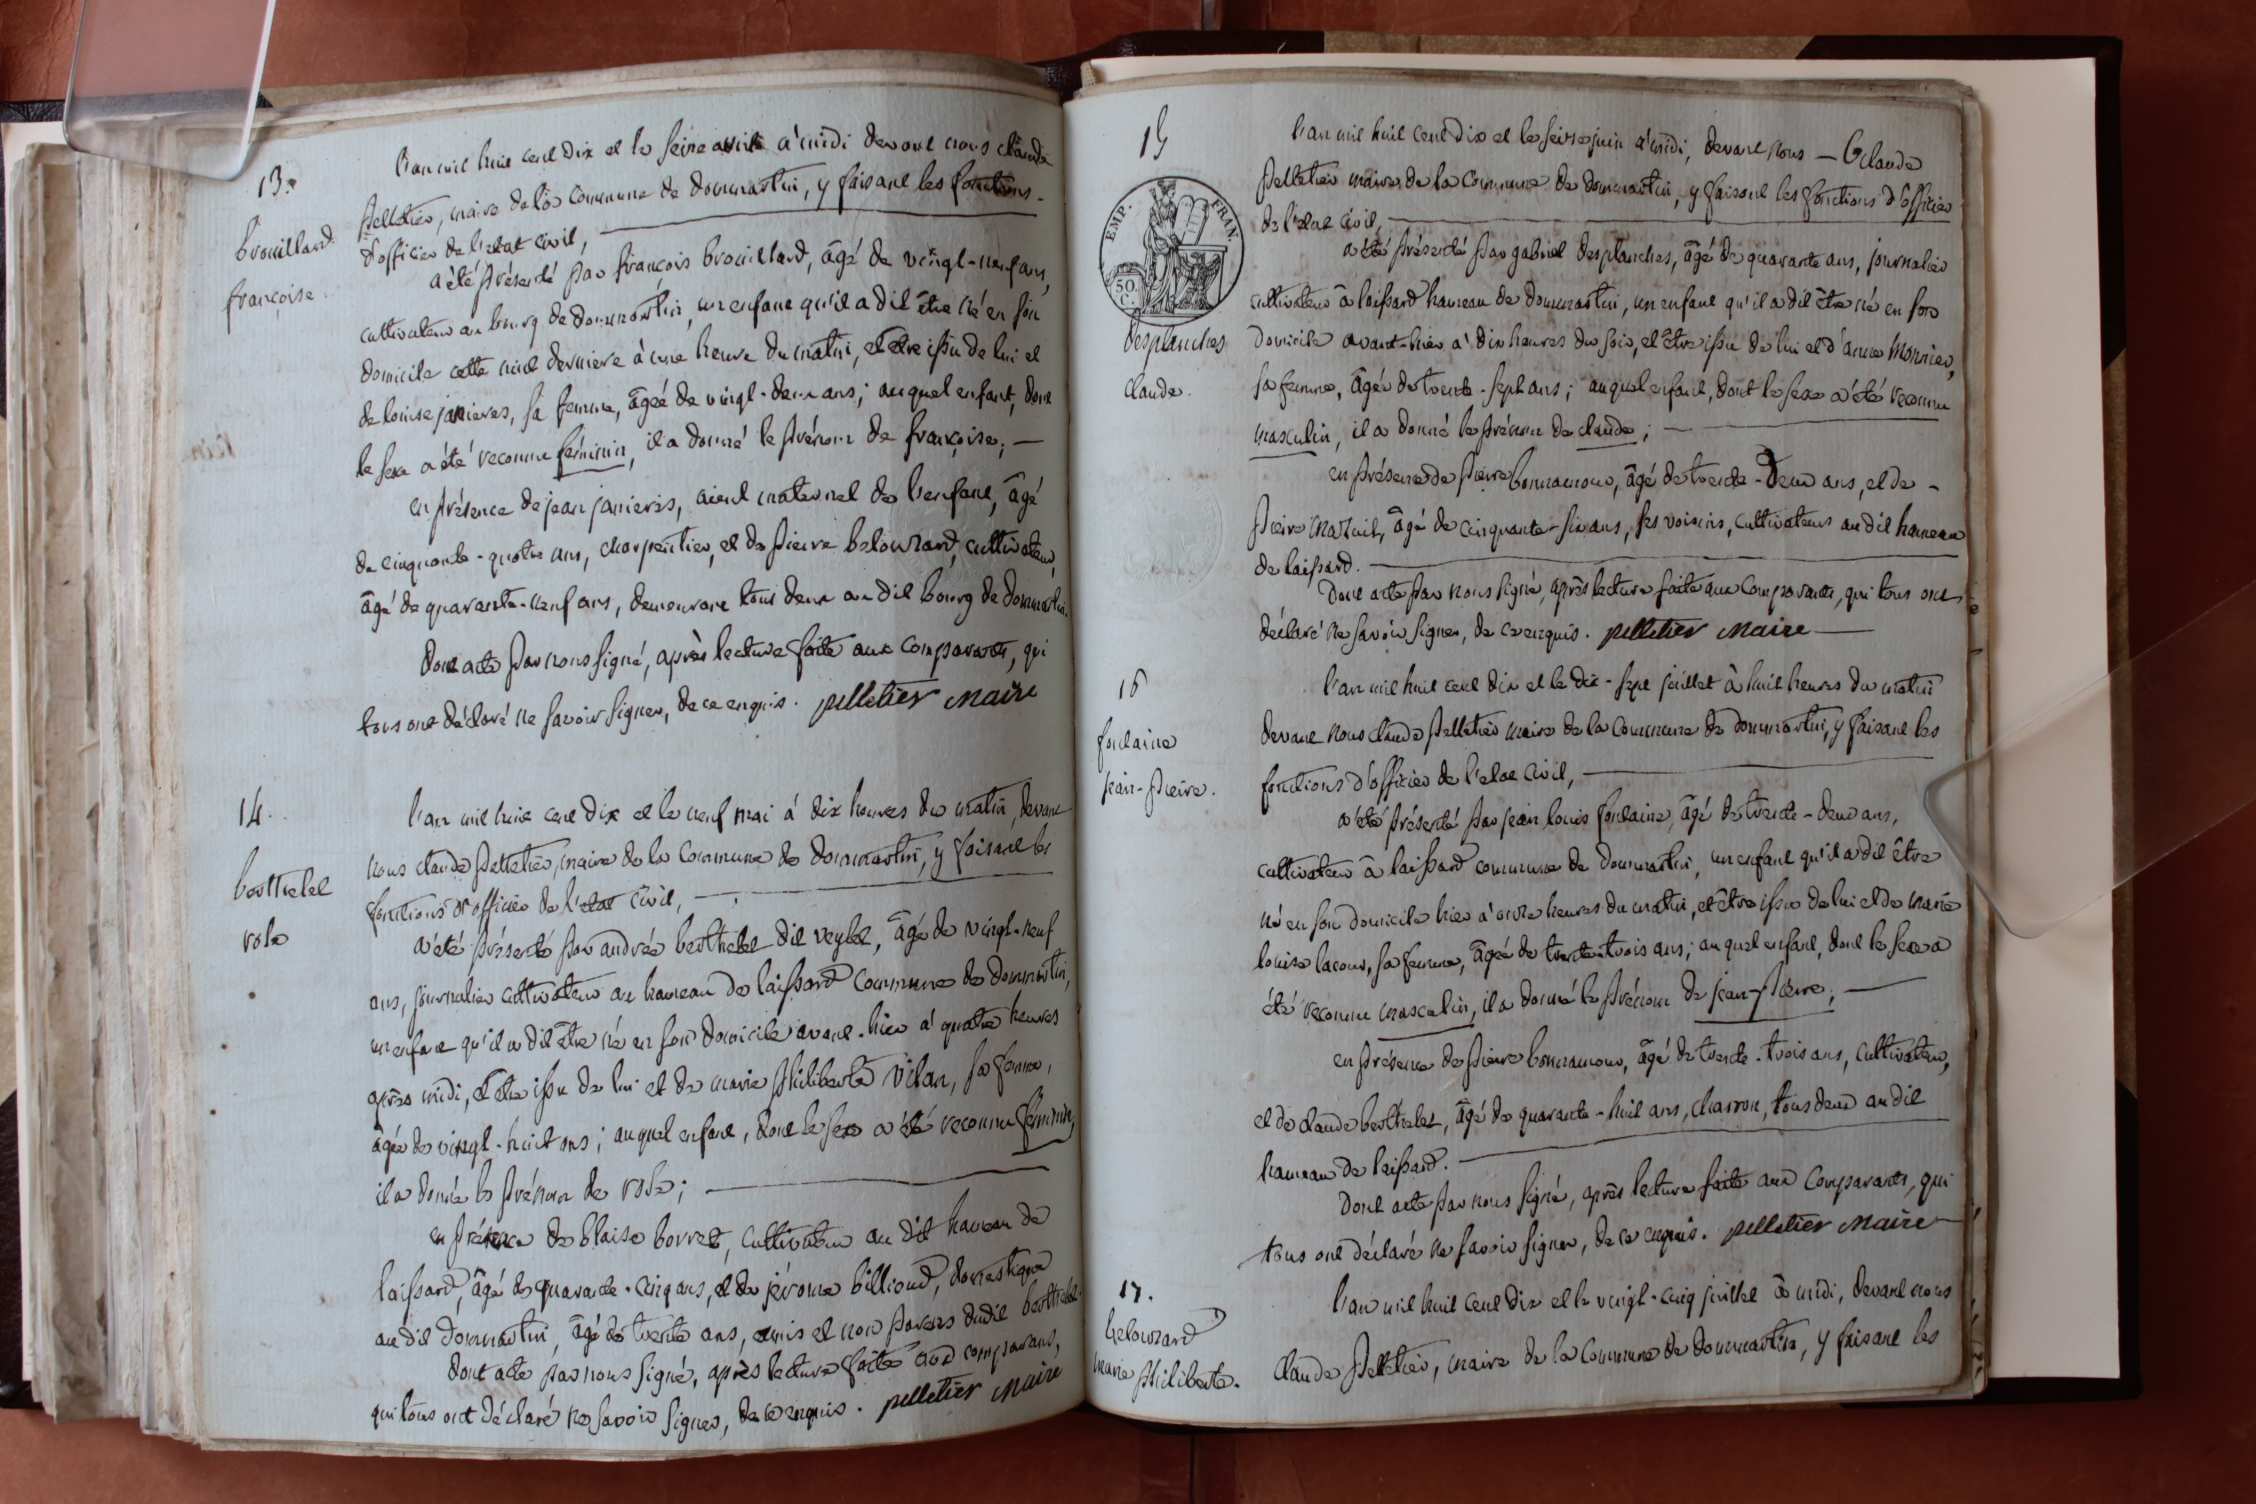 13.
brouillard
françoise.
l'an mil huit cent dix et le seize avril à midi devant nous claude
pelletier, maire de la commune de dommartin, y faisant les fonctions
d'officier de l'etat civil,
a été présenté par françois brouillard, âgé de vingt-neuf ans,
cultivateur au bourg de dommartin, un enfant qu'il a dit être né en son
domicile cette nuit derniere à une heure du matin, et être issu de lui et
de louise janieres, sa femme, âgée de vingt-deux ans; auquel enfant, dont
le sexe a été reconnu féminin, il a donné le prénom de françoise;
en présence de jean janieres, aieul maternel de l'enfant, âgé
de cinquante-quatre ans, charpentier, et de pierre belouzard, cultivateur,
âgé de quarante-neuf ans, demeurant tous deux au dit bourg de dommartin.
dont acte par nous signé, après lecture faite aux comparants, qui
tous ont déclaré ne savoir signer, de ce enquis. pelletier maire
14.
berthelet
rose
l'an mil huit cent dix et le neuf mai à dix heures du matin, devant
nous claude pelletier, maire de la commune de dommartin, y faisant les
fonctions d'officier de l'etat civil,
a été présenté par andrée berthelet dit veylet, âgé de vingt-neuf
ans, journalier cultivateur au hameau de laissard commune de dommartin,
un enfant qu'il a dit être né en son domicile avant-hier à quatre heures
après midi, et être issu de lui et de marie philiberte vilan, sa femme,
âgée de vingt-huit ans; auquel enfant, dont le sexe a été reconnu féminin,
il a donné le prénom de rose;
en présence de blaise borret, cultivateur au dit hameau de
laissard, âgé de quarante-cinq ans, et de jérome billioud, domestique
au dit dommartin, âgé de trente ans, amis et non parens dudit berthelet.
dont acte par nous signé, après lecture faite aux comparans,
qui tous ont déclaré ne savoir signer, de ce enquis. pelletier maire
15
EMP. FRAN.
50.
C.
desplanches
claude.
l'an mil huit cent dix et le seize juin à midi, devant nous Claude
pelletier maire de la commune de dommartin, y faisant les fonctions d'officier
de l'etat civil,
a été présenté par gabriel desplanches, âgé de quarante ans, journalier
cultivateur à laissard hameau de dommartin, un enfant qu'il a dit être né en son
domicile avant-hier à dix heures du soir, et être issu de lui et d'anne Monnier,
sa femme, âgée de trente-sept ans; auquel enfant, dont le sexe a été reconnu
masculin, il a donné le prénom de claude;
en présence de pierre bonnamour, âgé de trente-deux ans, et de
pierre mazuit, âgé de cinquante-six ans, ses voisins, cultivateurs au dit hameau
de laissard.
Dont acte par nous signé, après lecture faite aux comparants, qui tous ont
déclaré ne savoir signer, de ce enquis. pelletier maire
16
fontaine
jean-pierre.
l'an mil huit cent dix et le dix-sept juillet à huit heures du matin
devant nous claude pelletier maire de la commune de dommartin, y faisant les
fonctions d'officier de l'etat civil,
a été présenté par jean louis fontaine, âgé de trente-deux ans,
cultivateur à laissard commune de dommartin, un enfant qu'il a dit être
né en son domicile hier à onze heures du matin, et être issu de lui et de marie
louise lacour, sa femme, âgée de trente-trois ans; auquel enfant, dont le sexe a
été reconnu masculin, il a donné le prénom de jean-pierre;
en présence de pierre bonnamour, âgé de trente-trois ans, cultivateur,
et de claude berthelet, âgé de quarante-huit ans, charron, tous deux au dit
hameau de laissard.
Dont acte par nous signé, après lecture faite aux comparants, qui
tous ont déclaré ne savoir signer, de ce enquis. pelletier maire
17.
belouzard
marie philiberte.
l'an mil huit cent dix et le vingt-cinq juillet à midi, devant nous
claude pelletier, maire de la commune de dommartin, y faisant les